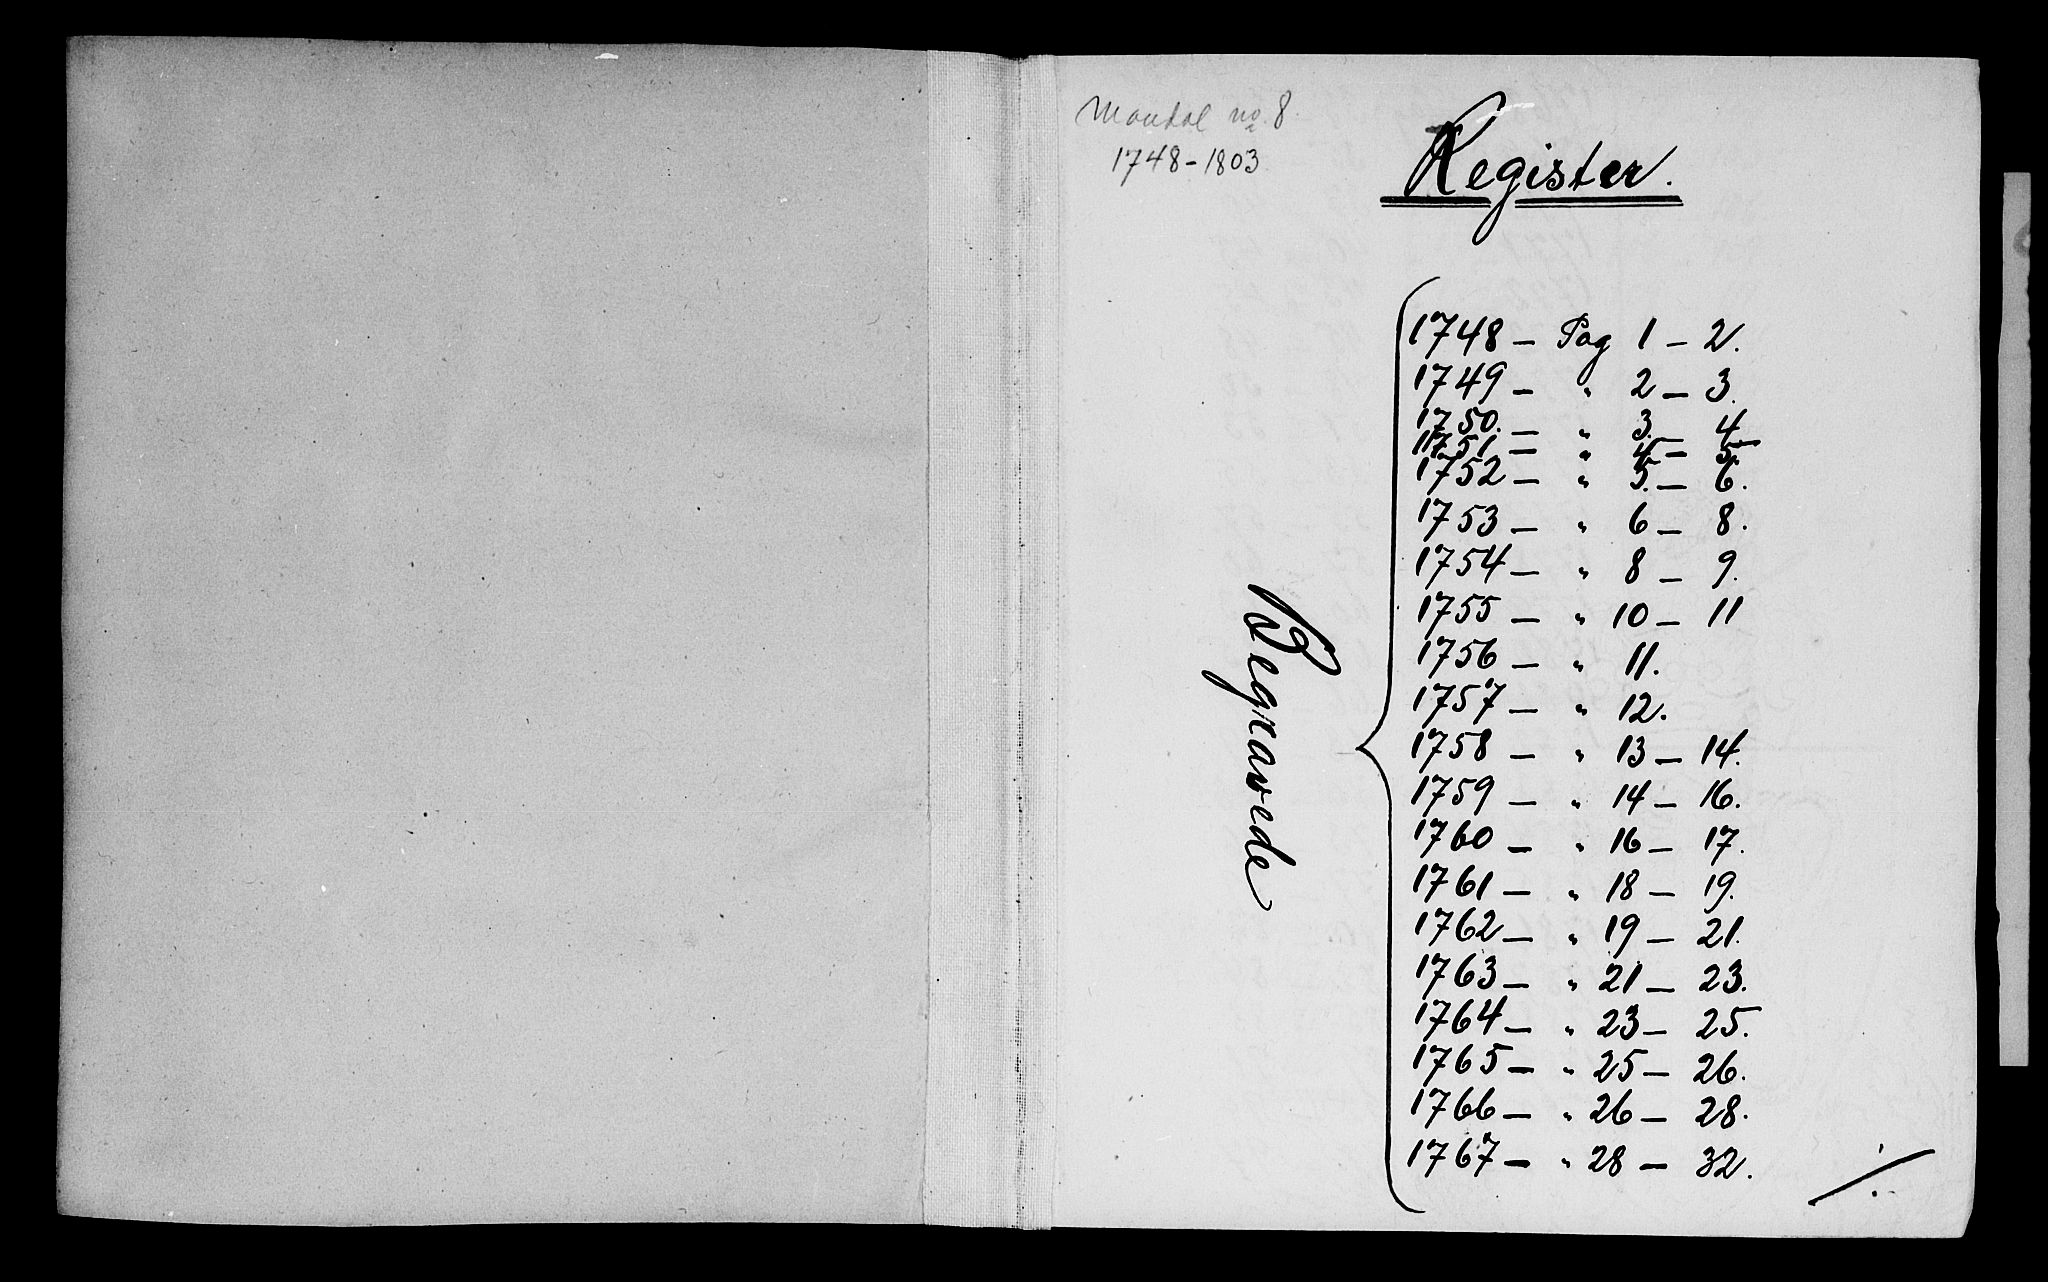 Mandal no. 8.
1748-1803
Register.
Begravede
1748 – Pag 1 – 2.
1749 – " 2 – 3.
1750. – " 3. – 4
1751 – " 4 – 5
1752 – " 5. – 6.
1753 – " 6 – 8.
1754 – " 8 – 9.
1755 – " 10 – 11
1756 – " 11.
1757 – " 12.
1758 – " 13 – 14.
1759 – " 14 – 16.
1760 – " 16 – 17.
1761 – " 18 – 19.
1762 – " 19 – 21.
1763 – " 21 – 23.
1764 – " 23 – 25.
1765 – " 25 – 26.
1766 – " 26 – 28.
1767 – " 28 – 32.
./.